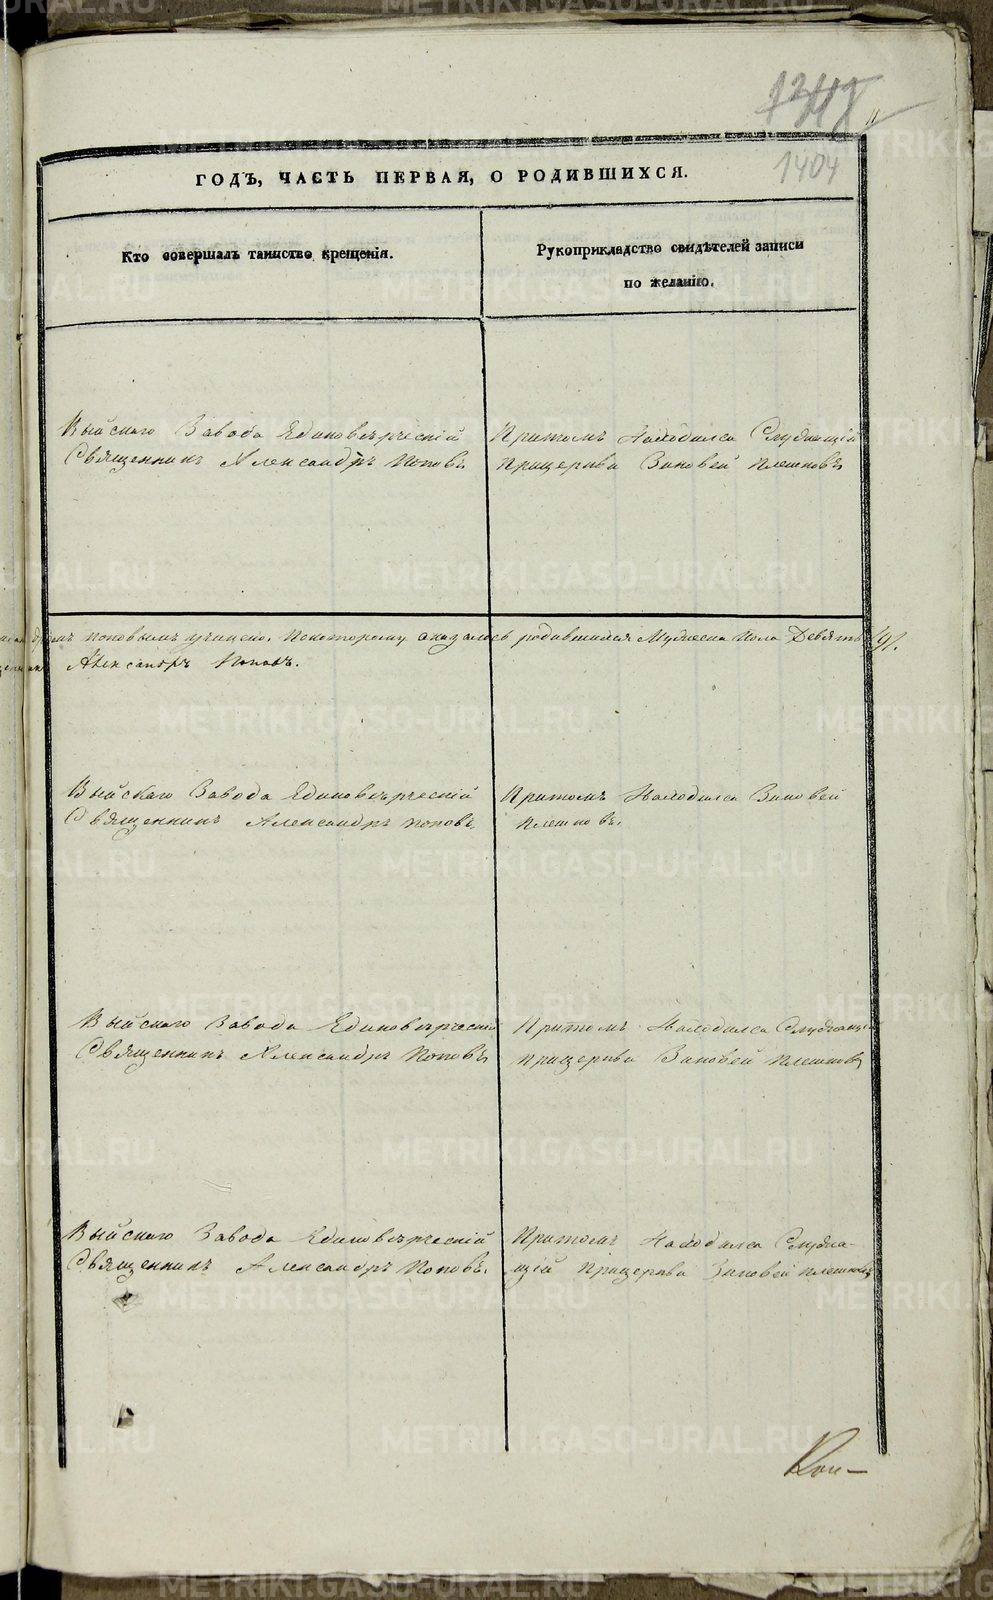 1404
ГОДЪ, ЧАСТЬ ПЕРВАЯ, О РОДИВШИХСЯ.
Кто совершалъ таинство крещенія.
Рукоприкладство свидѣтелей записи
по желанію.
Выйскаго Завода Единовѣрческій
Священникъ Александръ Поповъ
Притомъ Находился Служащій
прицерква Зиновей Плешковъ
Поповымъ учинено, покоторому оказалось родившихся Мужеска пола Девять /9/.
Александръ Поповъ.
Выйскаго Завода Единовѣрческій
Священникъ Александръ Поповъ
Притомъ Находился Зиновей
Плешковъ.
Выйскаго Завода Единовѣрческій
Священникъ Александръ Поповъ
Притомъ Находился Служащій
прицерква Зиновей Плешковъ
Выйскаго Завода Единовѣрческій
Священникъ Александръ Поповъ.
Притомъ Находился Служа-
щій прицерква Зиновей Плешковъ
METRIKI.GASO-URAL.RU